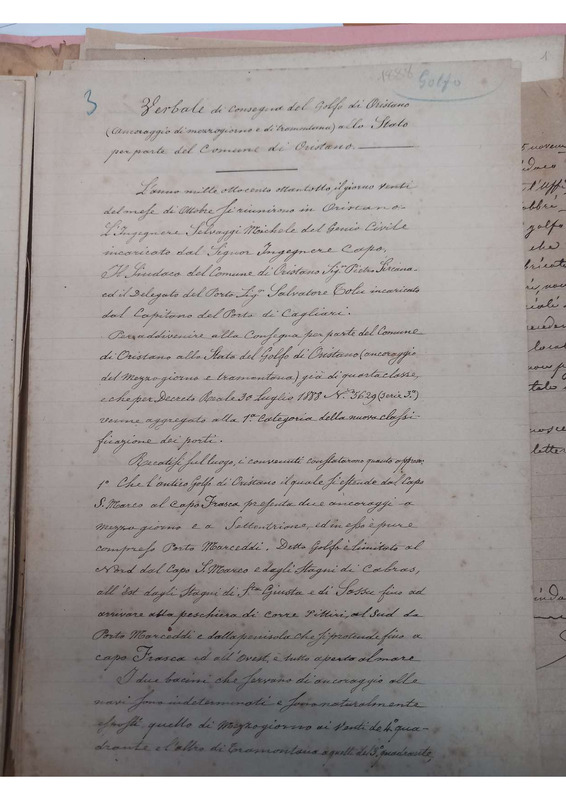 3
1888
Golfo
1
Verbale di Consegna del Golfo di Oristano
(ancoraggio di mezzogiorno e di tramontana) allo Stato
per parte del Comune di Oristano.
L'anno mille ottocento ottantotto il giorno venti
del mese di Ottobre si riunirno in Oristano.
L'Ingegnere Selvaggi Michele del Genio Civile
incaricato dal Signor Ingegnere Capo,
Il Sindaco del Comune di Oristano Sigr. Pietro
ed il Delegato del Porto Sigr. Salvatore Tolu incaricato
dal Capitano del Porto di Cagliari.
Per addivenire alla Consegna per parte del Comune
di Oristano allo Stato del Golfo di Oristano (ancoraggio
del Mezzogiorno e tramontana) già di quarta classe,
e che per Decreto Reale 30 Luglio 1888 N. 5629 (serie 3a)
venne aggregato alla 1a Categoria della nuova classi-
ficazione dei porti.
Recatisi sul luogo, i convenuti constatarono quanto
1° Che l'antico Golfo di Oristano il quale si estende dal Capo
S. Marco al Capo Frasca presenta due ancoraggi a
mezzogiorno e a Settentrione, ed in esso è pure
compreso Porto Marceddi. Detto Golfo è limitato al
Nord dal Capo S. Marco e dagli Stagni di Cabras,
all'Est dagli Stagni di Sta Giusta e di Sassu fino ad
arrivare alla peschiera di Corre Pittiri, al Sud da
Porto Marceddi e dalla penisola che si protende fino a
capo Frasca ed all'Ovest, è tutto aperto al mare
I due bacini che servono di ancoraggio alle
navi sono indeterminati e sono naturalmente
esposti quello di Mezzogiorno ai Venti de 4° qua-
drante, e l'altro di Tramontana a quelli del 3° quadrante,